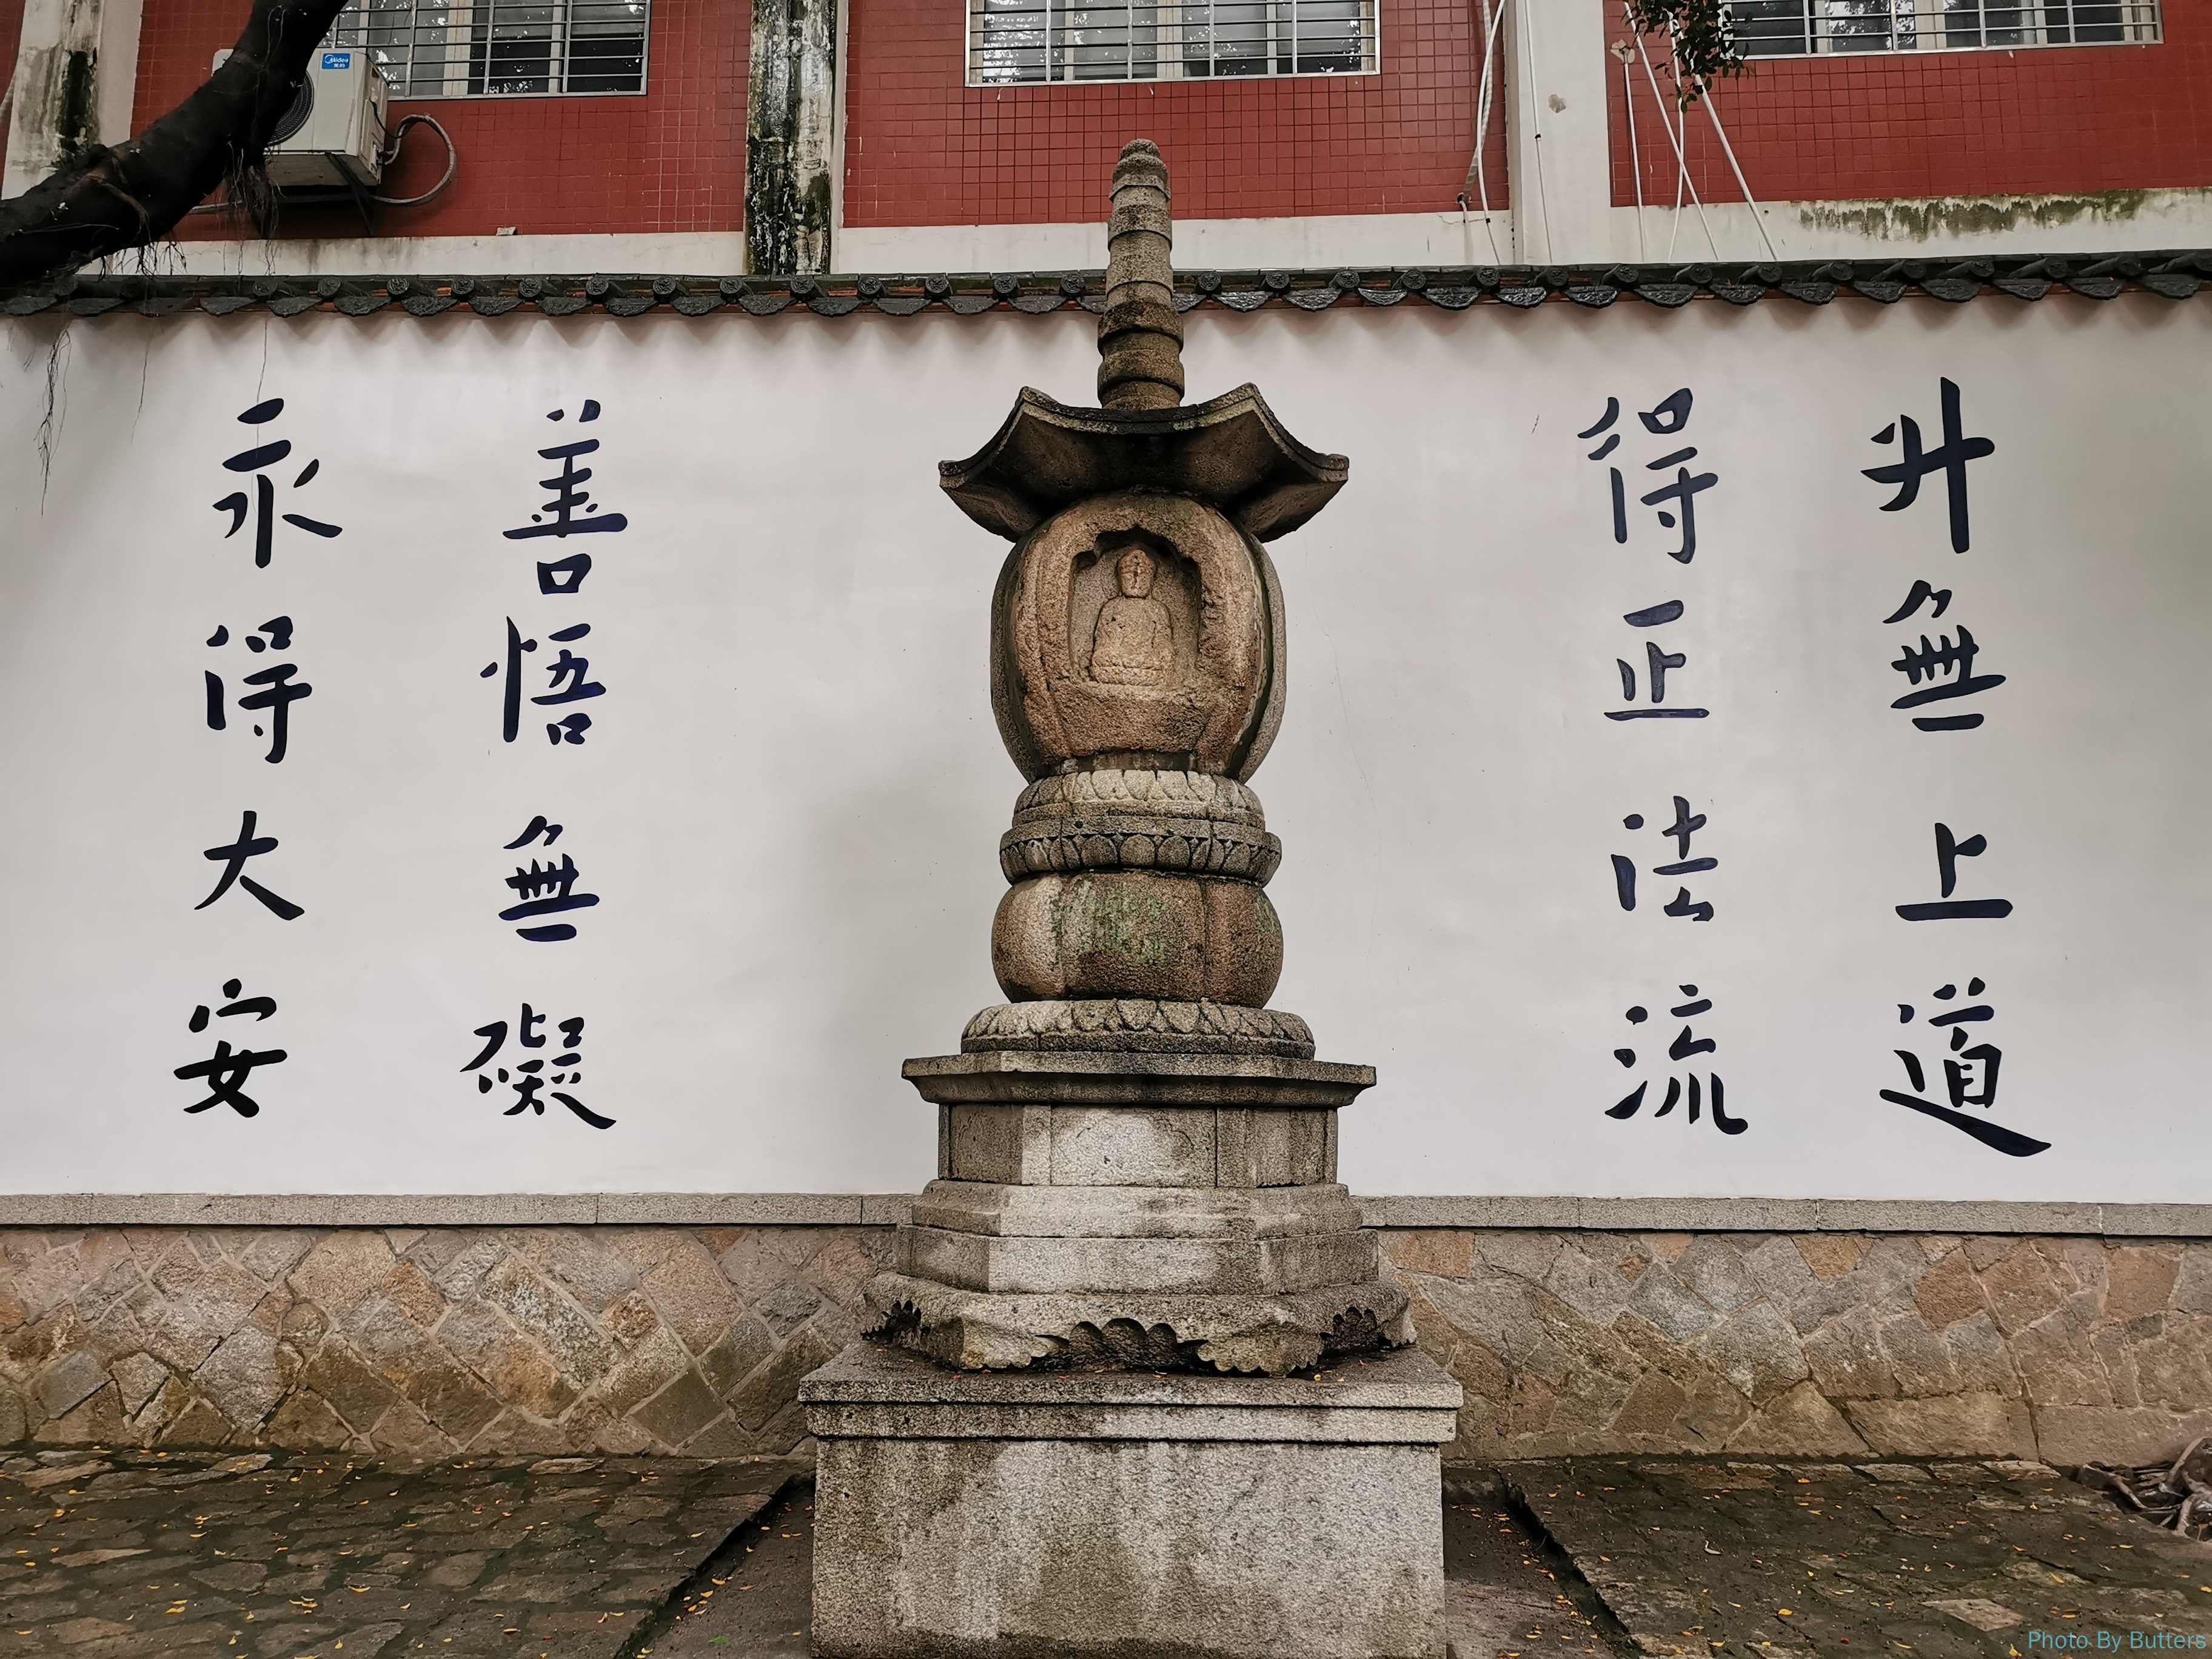 升無上道
得正法流
善悟無礙
永得大安
Midea
美的
Photo By Butters